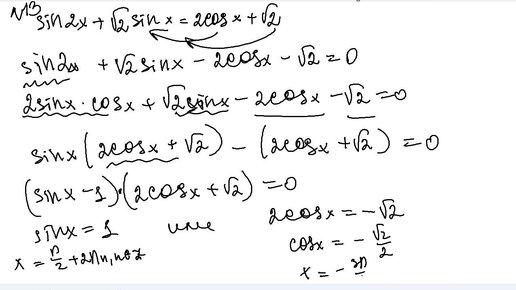 N13 sin2x + √2 sinx = 2cosx + √2
sin2x + √2 sinx - 2cosx - √2 = 0
2sinx · cosx + √2 sinx - 2cosx - √2 = 0
sinx (2cosx + √2) - (2cosx + √2) = 0
(sinx - 1) · (2cosx + √2) = 0
sinx = 1 или 2cosx = -√2
x = π/2 + 2πn, n∈Z cosx = -√2/2
x = - 3π